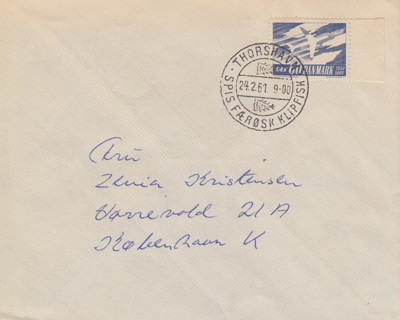 THORSHAVN
24.2.61. 9-00
SPIS FÆRØSK KLIPFISK
60 DANMARK
Fru
Xenia Kristensen
Nørrevold 21 A
København K